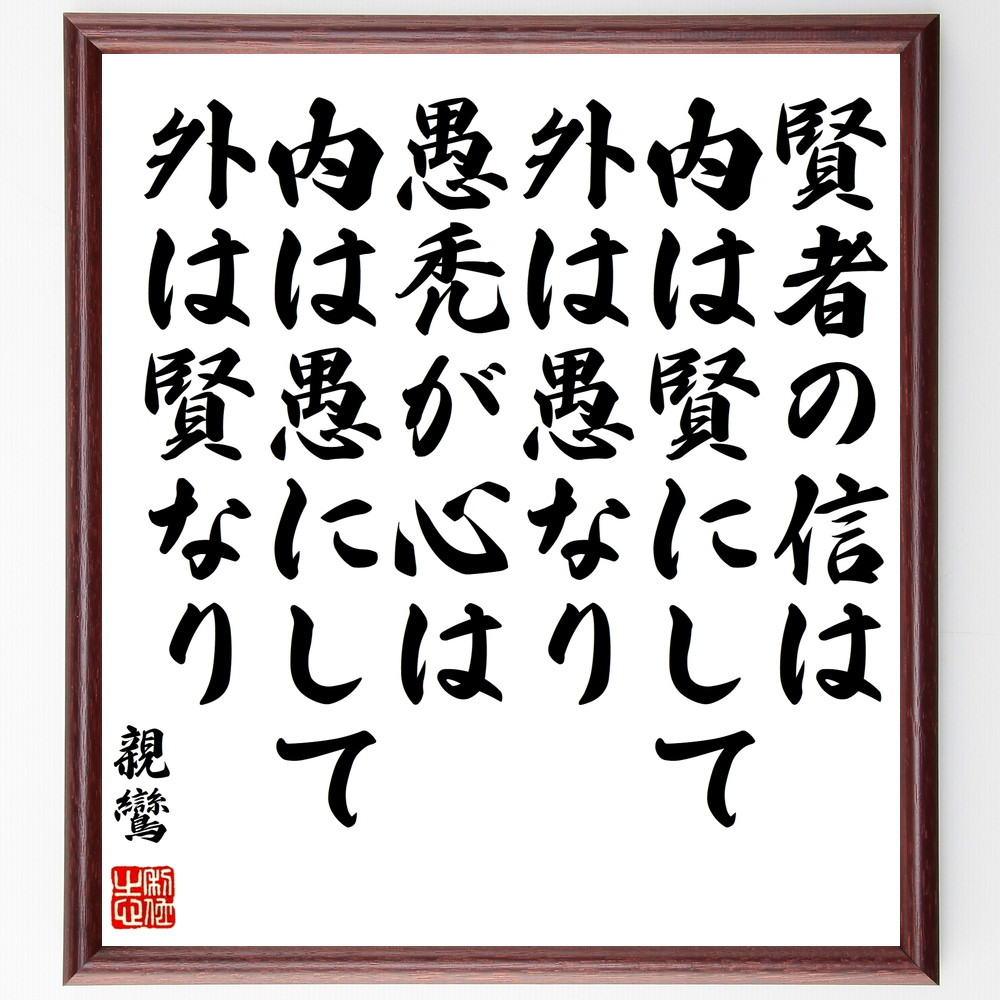 賢者の信は
内は賢にして
外は愚なり
愚禿が心は
内は愚にして
外は賢なり
親鸞